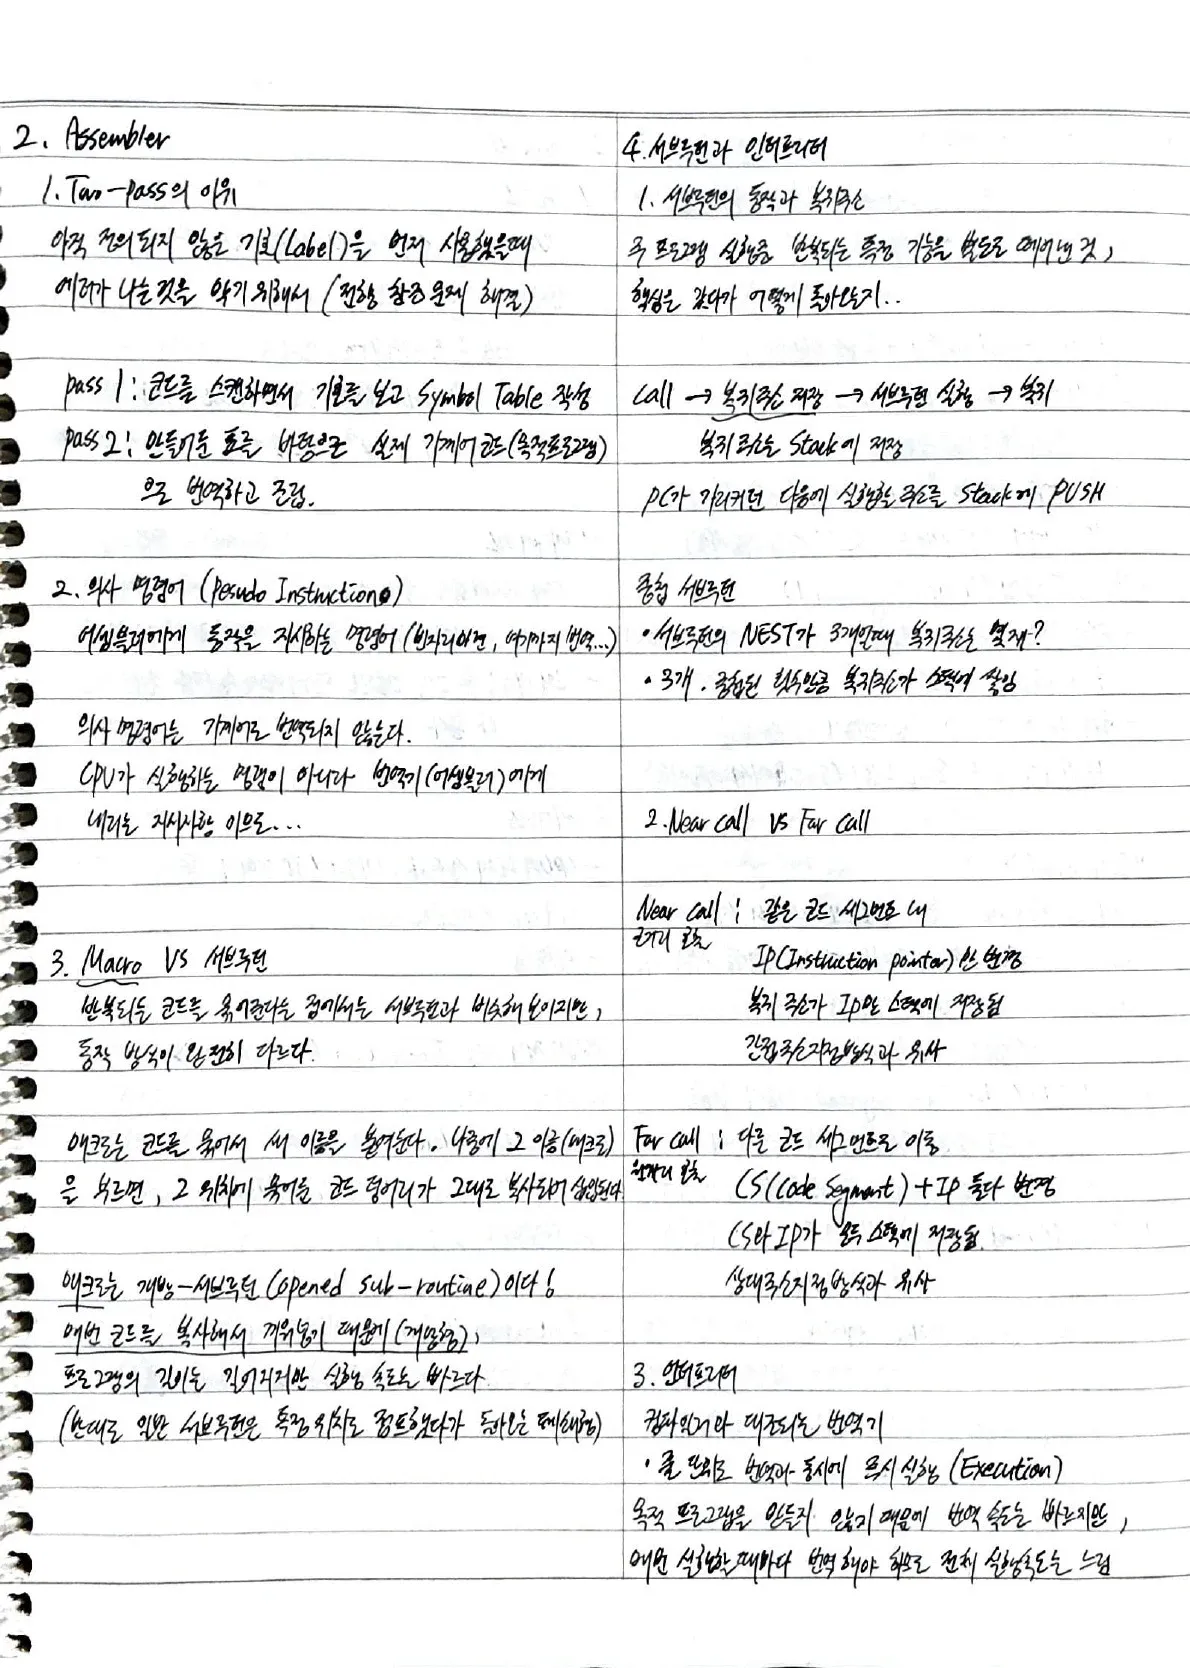 2. Assembler
1. Two-pass의 이유
아직 정의되지 않은 기호(Label)을 먼저 사용했을때
에러가 나는것을 막기위해서 (전향 참조 문제 해결)
pass 1 : 코드를 스캔하면서 기호를 보고 Symbol Table 작성
pass 2 : 만들어둔 표를 바탕으로 실제 기계어 코드(목적프로그램)
으로 번역하고 조립.
2. 의사 명령어 (Pesudo Instruction)
어셈블러에게 동작을 지시하는 명령어 (번지라이건, 여기까지 번역...)
의사 명령어는 기계어로 번역되지 않는다.
CPU가 실행하는 명령이 아니라 번역기(어셈블러)에게
내리는 지시사항 이므로...
3. Macro VS 서브루틴
반복되는 코드를 묶어둔다는 점에서는 서브루틴과 비슷해 보이지만,
동작 방식이 완전히 다르다.
매크로는 코드를 묶어서 새 이름을 붙여둔다. 나중에 그 이름(매크로)
을 부르면, 그 위치에 묶어둔 코드 덩어리가 그대로 복사되어 삽입된다
매크로는 개방-서브루틴(opened sub-routine)이다!
매번 코드를 복사해서 끼워넣기 때문에(개방형),
프로그램의 길이는 길어지지만 실행 속도는 빠르다.
(반대로 일반 서브루틴은 특정 위치로 점프했다가 돌아오는 폐쇄형)
4. 서브루틴과 인터프리터
1. 서브루틴의 동작과 복귀주소
주 프로그램 실행중 반복되는 특정 기능을 별도로 떼어낸 것,
핵심은 갔다가 어떻게 돌아오는지..
Call → 복귀주소 저장 → 서브루틴 실행 → 복귀
복귀주소는 Stack에 저장
PC가 가리키던 다음에 실행할 주소를 Stack에 PUSH
중첩 서브루틴
• 서브루틴의 NEST가 3개일때 복귀주소는 몇개?
• 3개. 중첩된 횟수만큼 복귀주소가 스택에 쌓임
2. Near call VS Far call
Near call : 같은 코드 세그먼트 내
근거리 호출
IP(Instruction pointer)만 변경
복귀 주소가 IP만 스택에 저장됨
간접주소지정방식과 유사
Far call : 다른 코드 세그먼트로 이동
원거리 호출
CS(Code Segment) + IP 둘다 변경
CS와 IP가 모두 스택에 저장됨.
상대주소지정방식과 유사
3. 인터프리터
컴파일러와 대조되는 번역기
• 줄 단위로 번역과 동시에 즉시 실행 (Execution)
목적 프로그램을 만들지 않기 때문에 번역 속도는 빠르지만,
매번 실행할때마다 번역해야 하므로 전체 실행속도는 느림